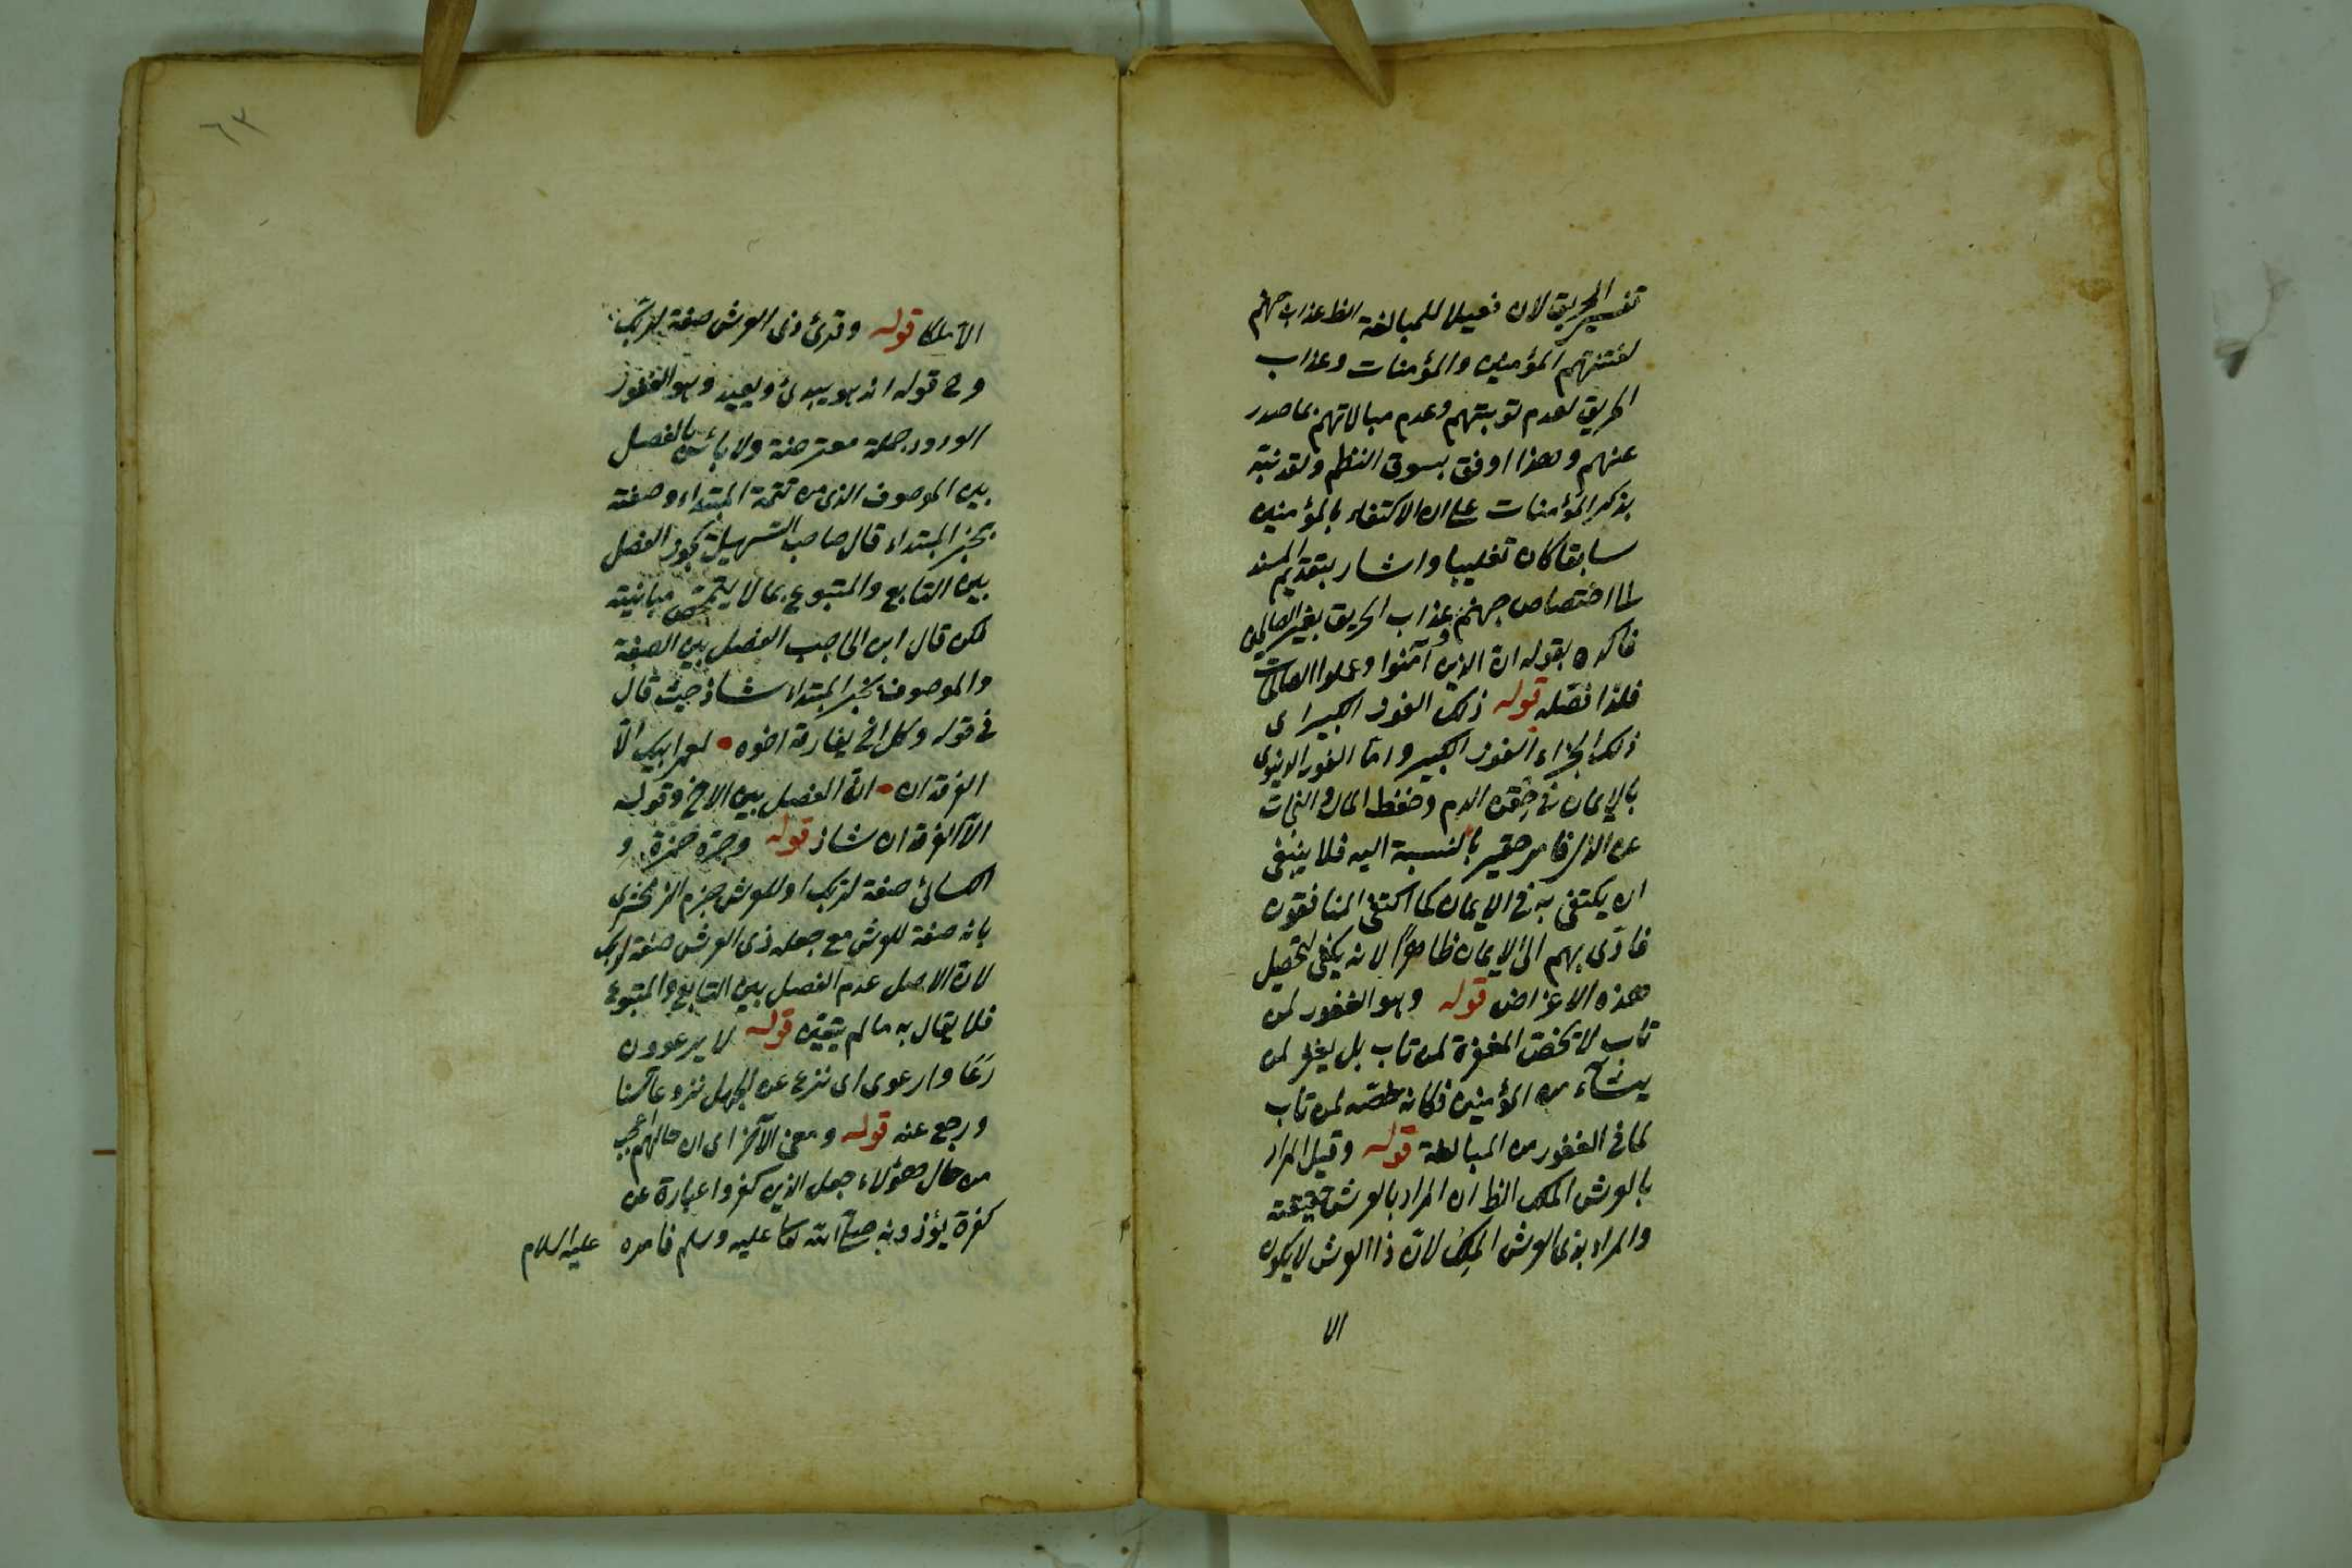 تفسير الحريق لان فعيلا للمبالغة الظ عذاب جهنم
لفتنتهم المؤمنين والمؤمنات وعذاب
الحريق لعدم توبتهم وعدم مبالاتهم بما صدر
عنهم وهذا اوفق بسوق النظم ولقد نبه
بذكر المؤمنات على ان الاكتفاء بالمؤمنين
سابقا كان تغليبا واشار بتقديم المسند
لما اختصاص جهنم وعذاب الحريق بغير الصالحين
فاكده بقوله ان الذين آمنوا وعملوا الصالحات
فلذا فصله قوله ذلك الفوز الكبير اى
ذلك الجزاء الفوز الكبير واما الفوز الدنيوى
بالايمان فى حقن الدم وحفظ المال والنجات
عن الذل فامر حقير بالنسبة اليه فلا ينبغى
ان يكتفى به فى الايمان كما اكتفى المنافقون
فادى بهم الى الايمان ظاهرا لانه يكفى لتحصيل
هذه الاغراض قوله وهو الغفور لمن
تاب لا تخص المغفرة لمن تاب بل يغفر لمن
يشاء من المؤمنين فكانه خصه لمن تاب
لما فى الغفور من المبالغة قوله وقيل المراد
بالعرش الملك الظ ان المراد بالعرش حقيقته
والمراد بذى العرش الملك لان ذا العرش لا يكون
الا
٦٣
الا ملكا قوله وقرئ ذى العرش صفة لربك
وح قوله انه هو يبدئ ويعيد وهو الغفور
الودود جملة معترضة ولا بأس بالفصل
بين الموصوف الذى من تتمة المبتداء وصفته
بخبر المبتداء قال صاحب التسهيل يجوز الفصل
بين التابع والمتبوع بما لا يتمحض مباينته
لكن قال ابن الحاجب الفصل بين الصفة
والموصوف بخبر المبتداء شاذ حيث قال
فى قوله وكل اخ يفارقه اخوه • لعمر ابيك الا
الفرقدان • ان الفصل بين الاخ وقوله
الا الفرقدان شاذ قوله وجره حمزة و
الكسائى صفة لربك او للعرش جزم الزمخشرى
بانه صفة للعرش مع جعله ذى العرش صفة لربك
لان الاصل عدم الفصل بين التابع والمتبوع
فلا يقال به ما لم يتعين قوله لا يرعوون
رعا وارعوى اى نزع عن الجهل نزوعا حسنا
ورجع عنه قوله ومعنى الآخر اى ان حالهم اعجب
من حال هؤلاء جعل الذين كفروا عبارة عن
كفرة يؤذونه صلى الله تعالى عليه وسلم فامره عليه السلام